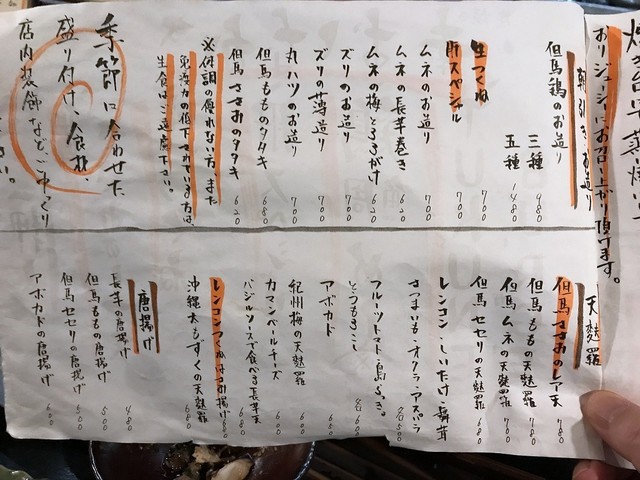 おりジューシーにお召し上がり頂けます。
朝引き お造り
但馬鶏のお造り
三種 980
五種 1480
生つくね 700
肝スペシャル 700
ムネのお造り 700
ムネの長芋巻き 620
ムネの梅とろろがけ 620
ズリのお造り 700
ズリの薄造り 700
丸ハツのお造り 700
但馬もものタタキ 680
但馬ささみのタタキ 620
※体調の優れない方、また
免疫力の低下されている方は、
生食はご遠慮下さい。
季節に合わせた
盛り付け、食材、
店内装飾などごゆっくり
天麩羅
但馬ささみのレア天 780
但馬ももの天麩羅 780
但馬ムネの天麩羅 780
但馬セセリの天麩羅 680
レンコン・しいたけ・舞茸
さつまいも・オクラ・アスパラ 各500
フルーツトマト・烏ふき。
とうもろこし 各600
アボカド 600
紀州梅の天麩羅 600
カマンベールチーズ 600
バジルソースで食べる長芋天 680
レンコンつくねはさみ揚げ 680
沖縄太もずくの天麩羅 600
唐揚げ
長芋の唐揚げ 480
但馬ももの唐揚げ 500
但馬セセリの唐揚げ 500
アボカドの唐揚げ 600